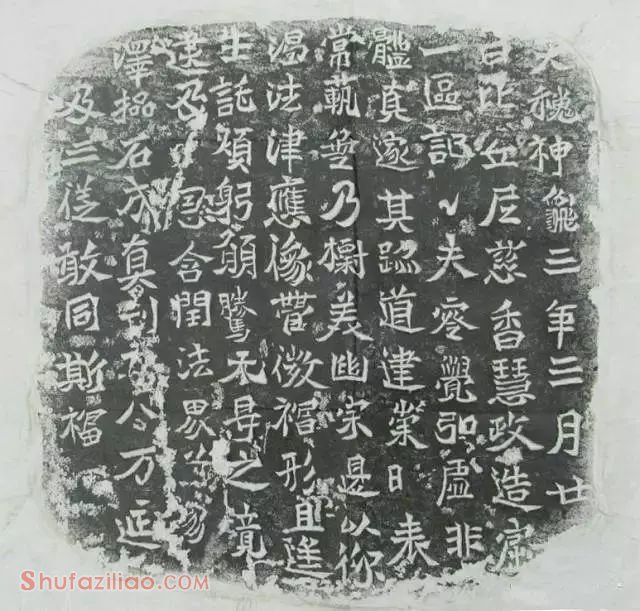 大魏神龜三年三月廿
日比丘尼慈香慧政造窟
一區記之夫零覺弘虛非
體真邃其跡道建崇日表
常軌無乃標美幽宗是以仰
渴法津應像營微福形且遙
生託煩躬願騰无㝵之境
逮及恩含閏法界
澤石成真刊功八万延
及三從敢同斯福
Shufaziliao.COM